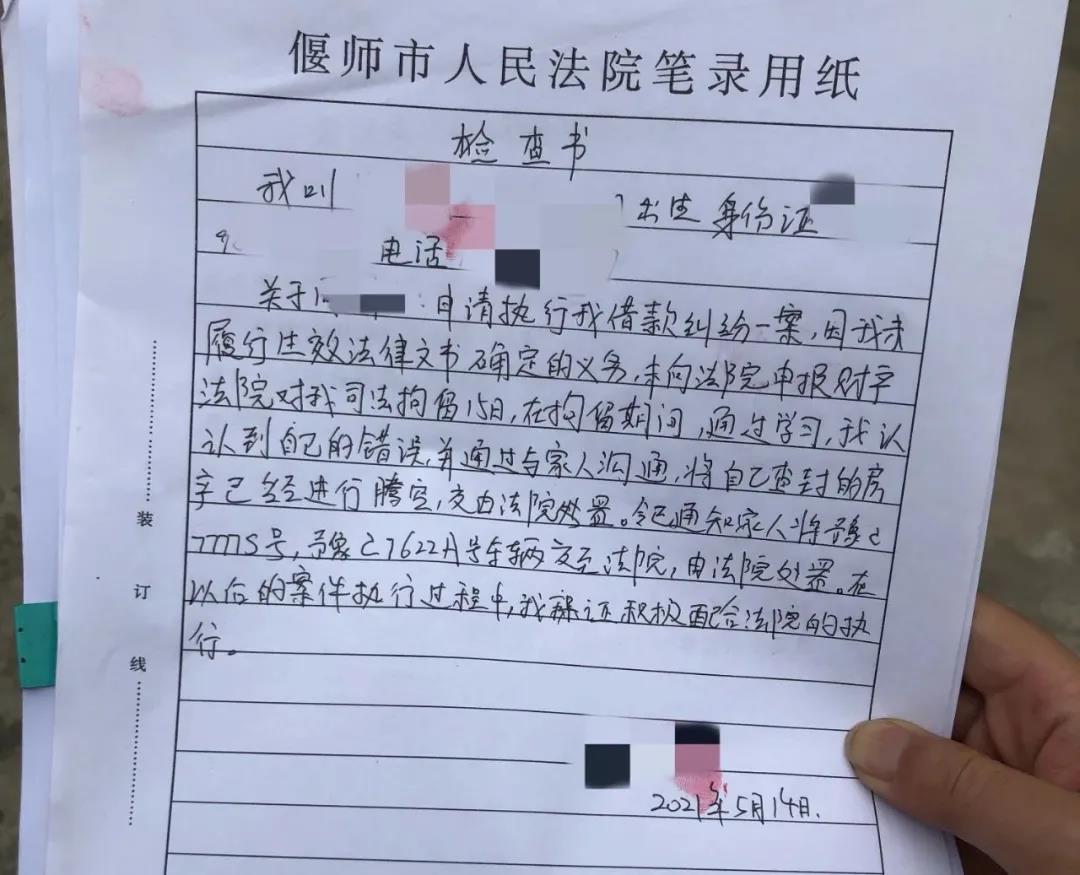 偃师市人民法院笔录用纸
检查书
我叫 出生 身份证
电话
关于 申请执行我借款纠纷一案,因我未
履行生效法律文书确定的义务,未向法院申报财产
法院对我司法拘留15日,在拘留期间,通过学习,我认
认到自己的错误,并通过与家人沟通,将自己查封的房
子已经进行腾空,交由法院处置。 通知家人将豫C
号,豫C7622A号车辆交至法院,由法院处置。在
以后的案件执行过程中,我 证积极配合法院的执
行。
2021年5月14日.
装
订
线